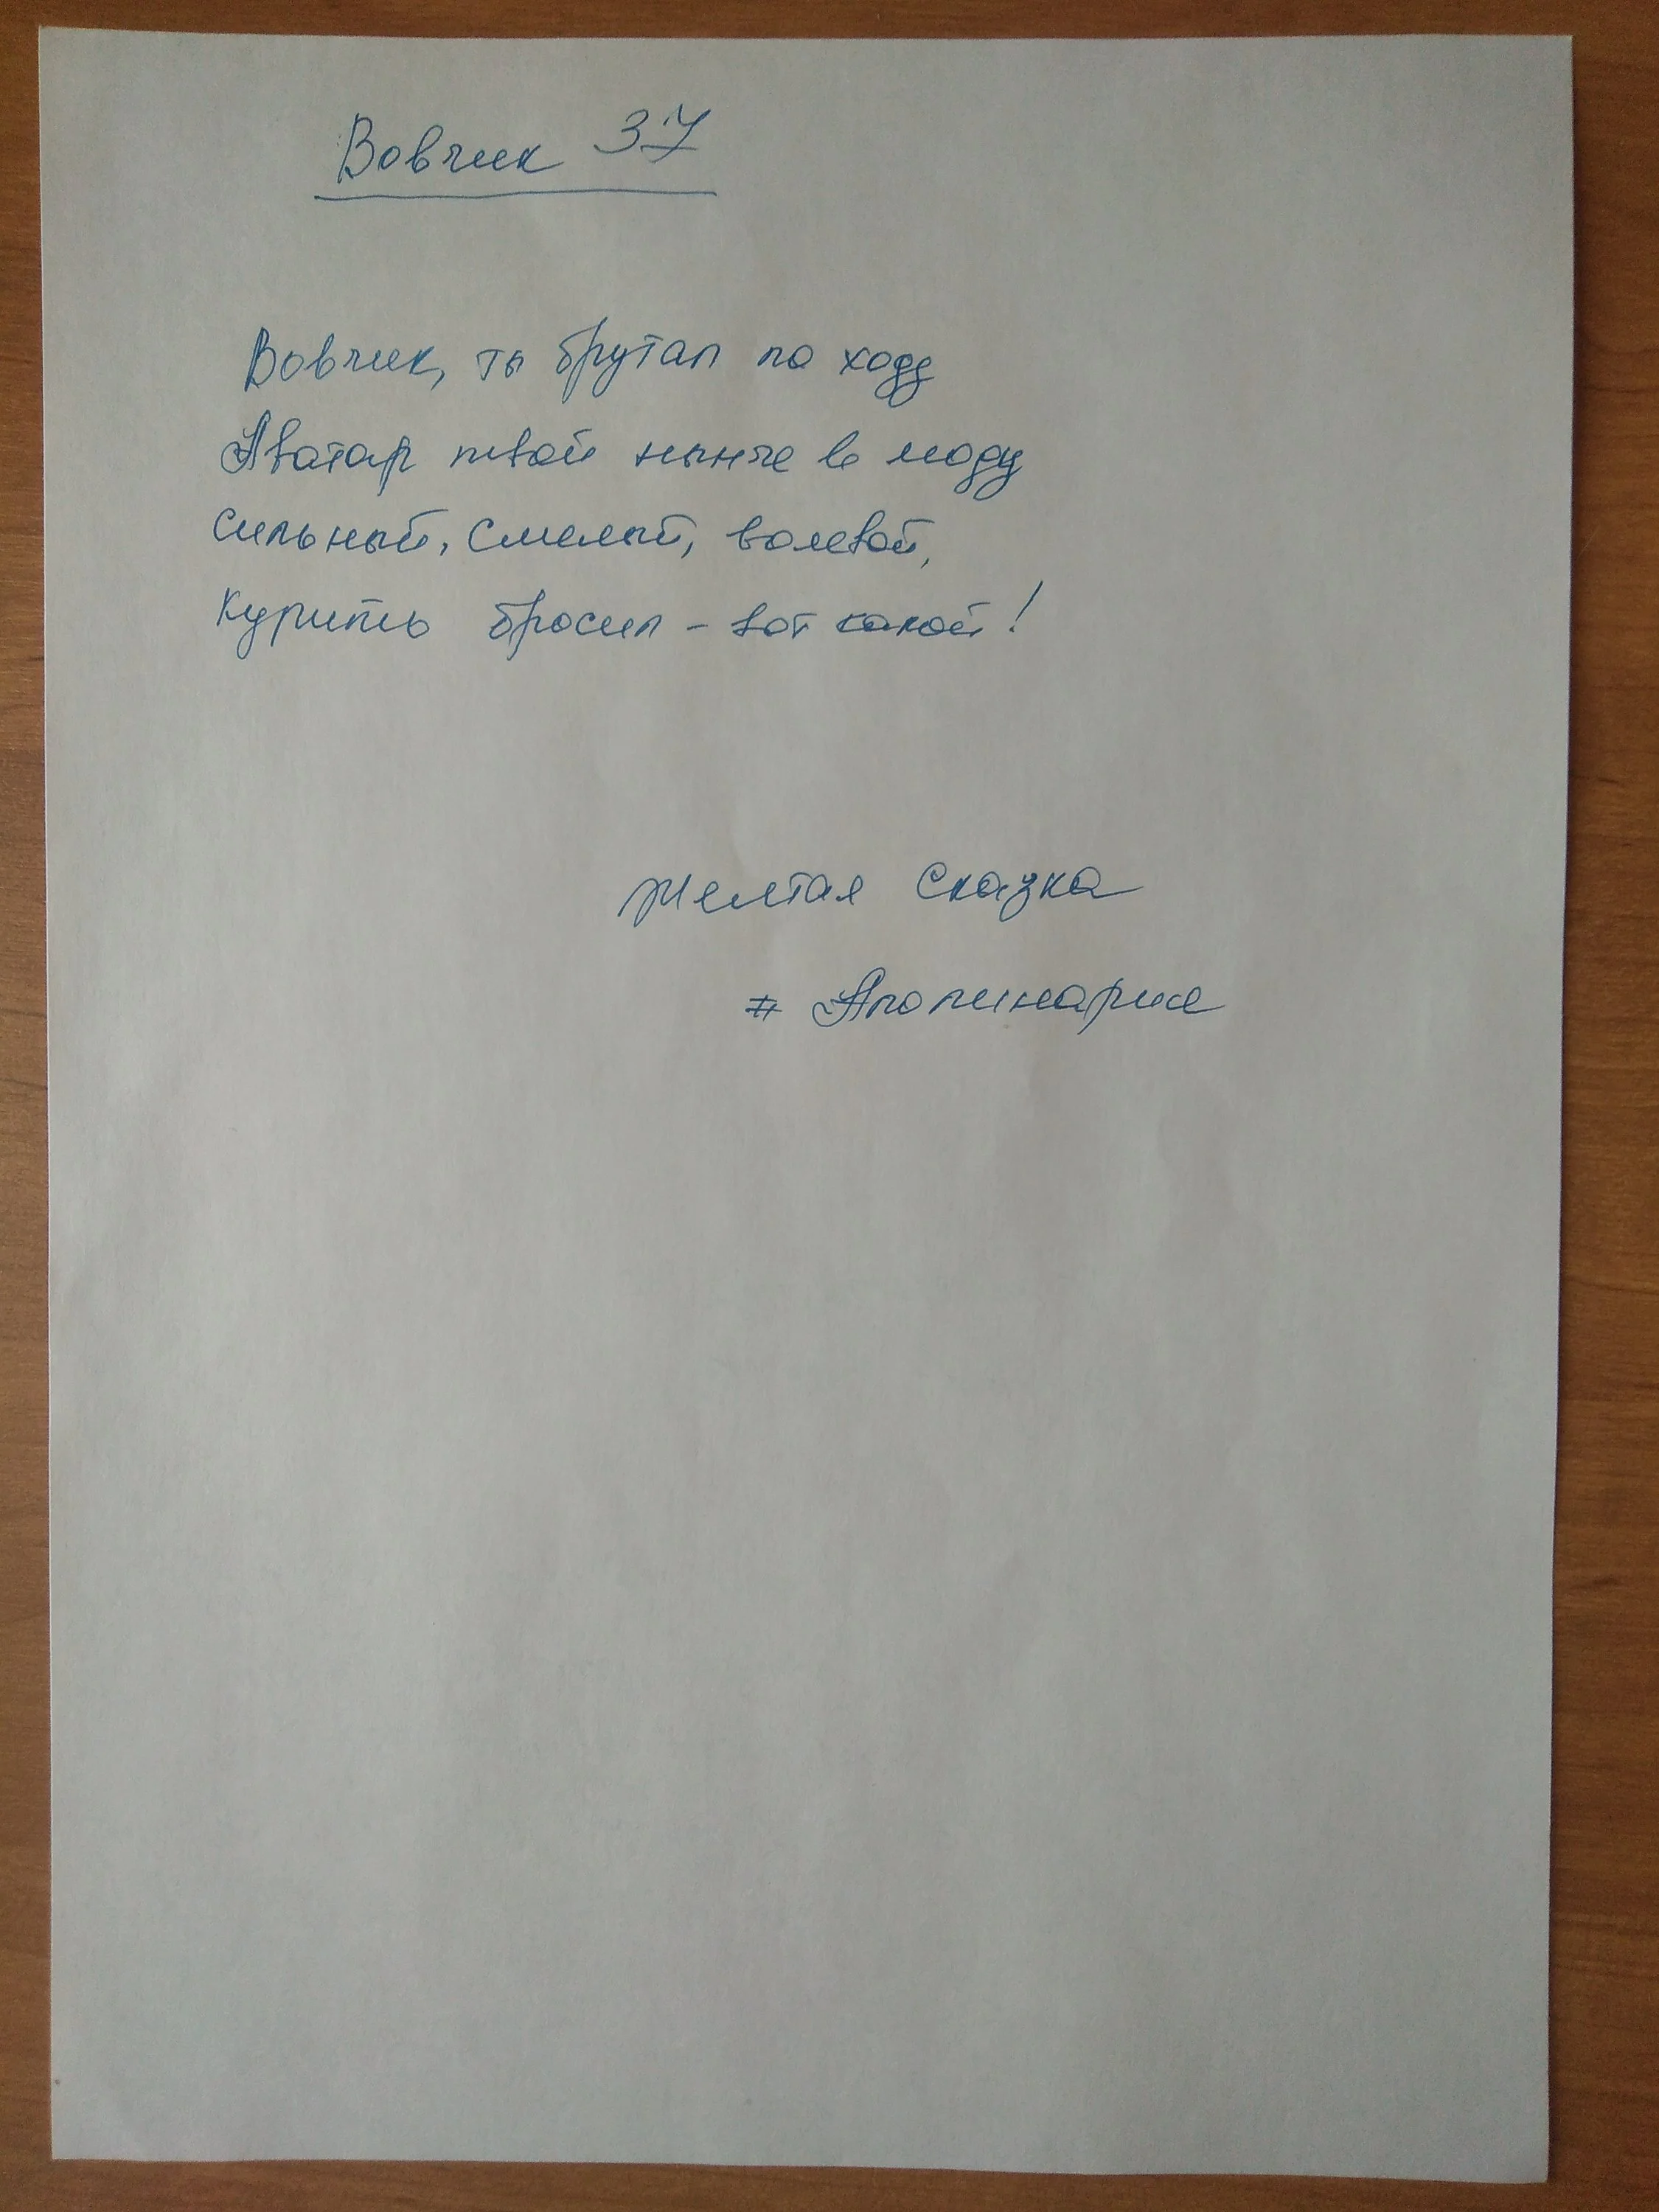 Вовчик 37
Вовчик, ты брутал по ходу
Аватар твой нынче в моду
Сильный, смелый, волевой,
Курить бросил - вот какой!
Желтая Сказка
# Аполинария